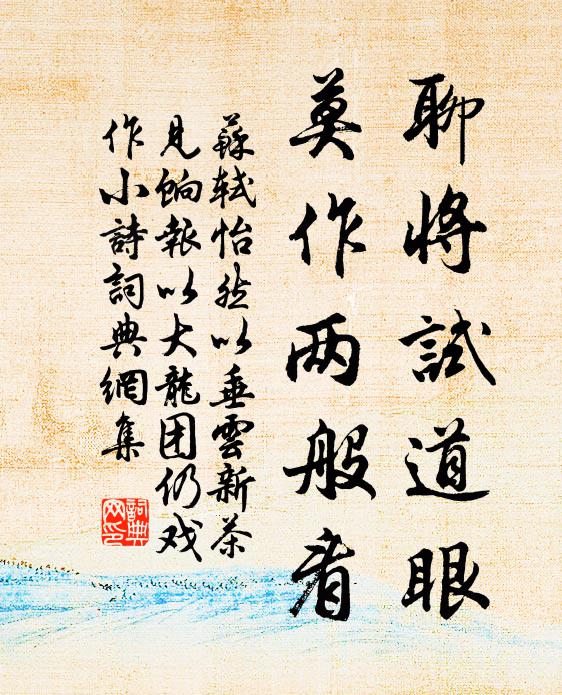 聊將試道眼
莫作两般看
蘇軾怡然以垂雲新茶
見餉報以大龍团仍戏
作小詩詞典網集
詞典
网印